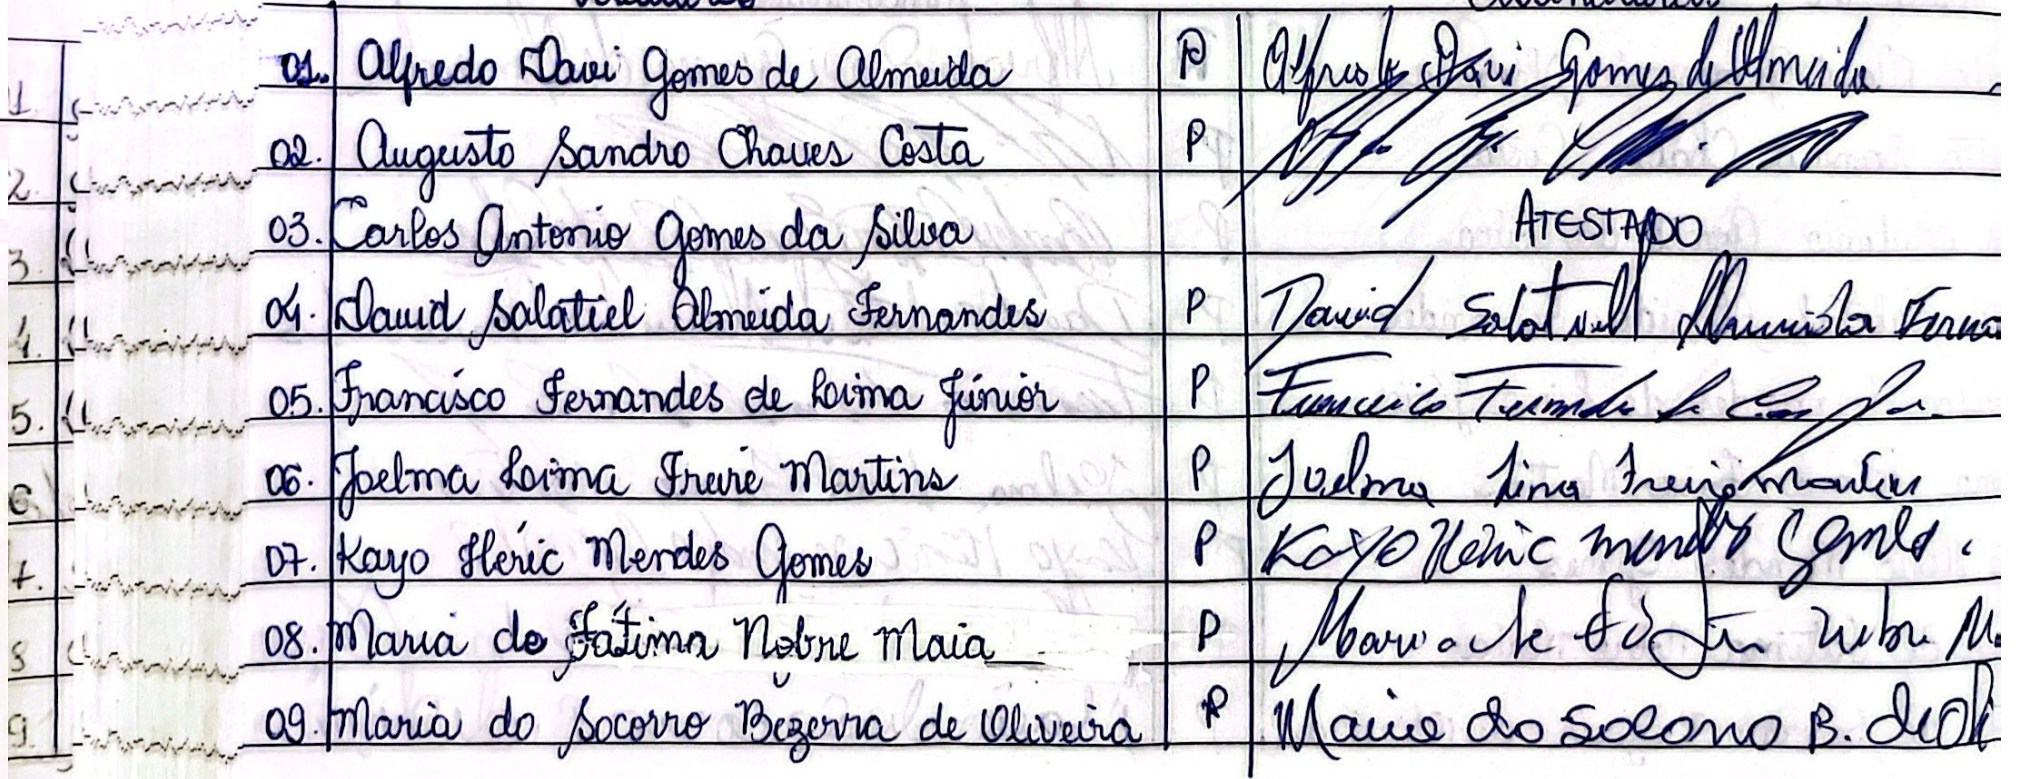 01. Alfredo Davi Gomes de Almeida P Alfredo Davi Gomes de Almeida
02. Augusto Sandro Chaves Costa P
03. Carlos Antonio Gomes da Silva ATESTADO
04. David Salatiel Almeida Fernandes P David Salatiel Almeida Ferna
05. Francisco Fernandes de Lima Júnior P Francisco Fernandes de Lima Jr.
06. Joelma Lima Freire Martins P Joelma Lima Freire Martins
07. Kayo Héric Mendes Gomes P Kayo Héric Mendes Gomes.
08. Maria de Fátima Nobre Maia P Maria de Fátima Nobre M
09. Maria do Socorro Bezerra de Oliveira P Maria do Socorro B. de Oli